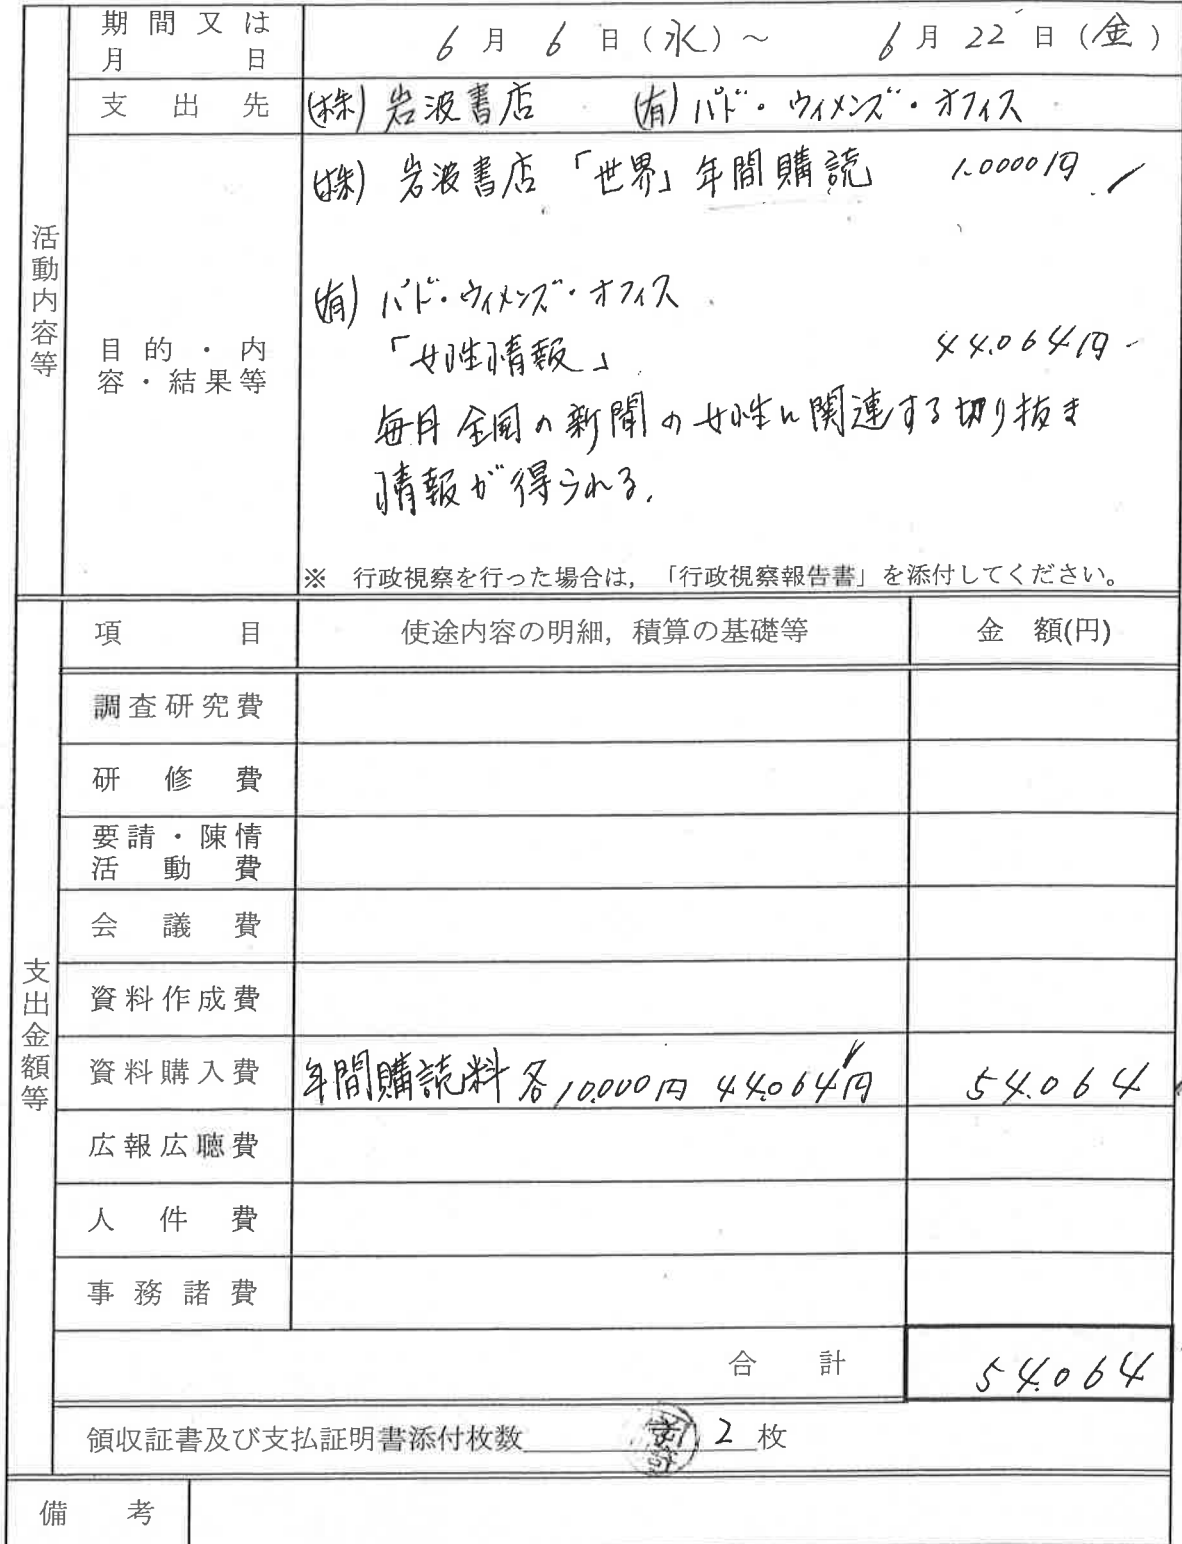 期間又は月日 6月6日（水）～ 6月22日（金）
支出先 (株)岩波書店 (有)パド・ウィメンズ・オフィス
活動内容等
目的・内容・結果等
(株)岩波書店「世界」年間購読 10000円
(有)パド・ウィメンズ・オフィス
「女性情報」 44.064円
毎月全国の新聞の女性に関連する切り抜き
情報が得られる.
※ 行政視察を行った場合は，「行政視察報告書」を添付してください。
支出金額等
項目 使途内容の明細，積算の基礎等 金額(円)
調査研究費
研修費
要請・陳情活動費
会議費
資料作成費
資料購入費 年間購読料各10.000円 44.064円 54.064
広報広聴費
人件費
事務諸費
合計 54.064
領収証書及び支払証明書添付枚数 2枚
備考